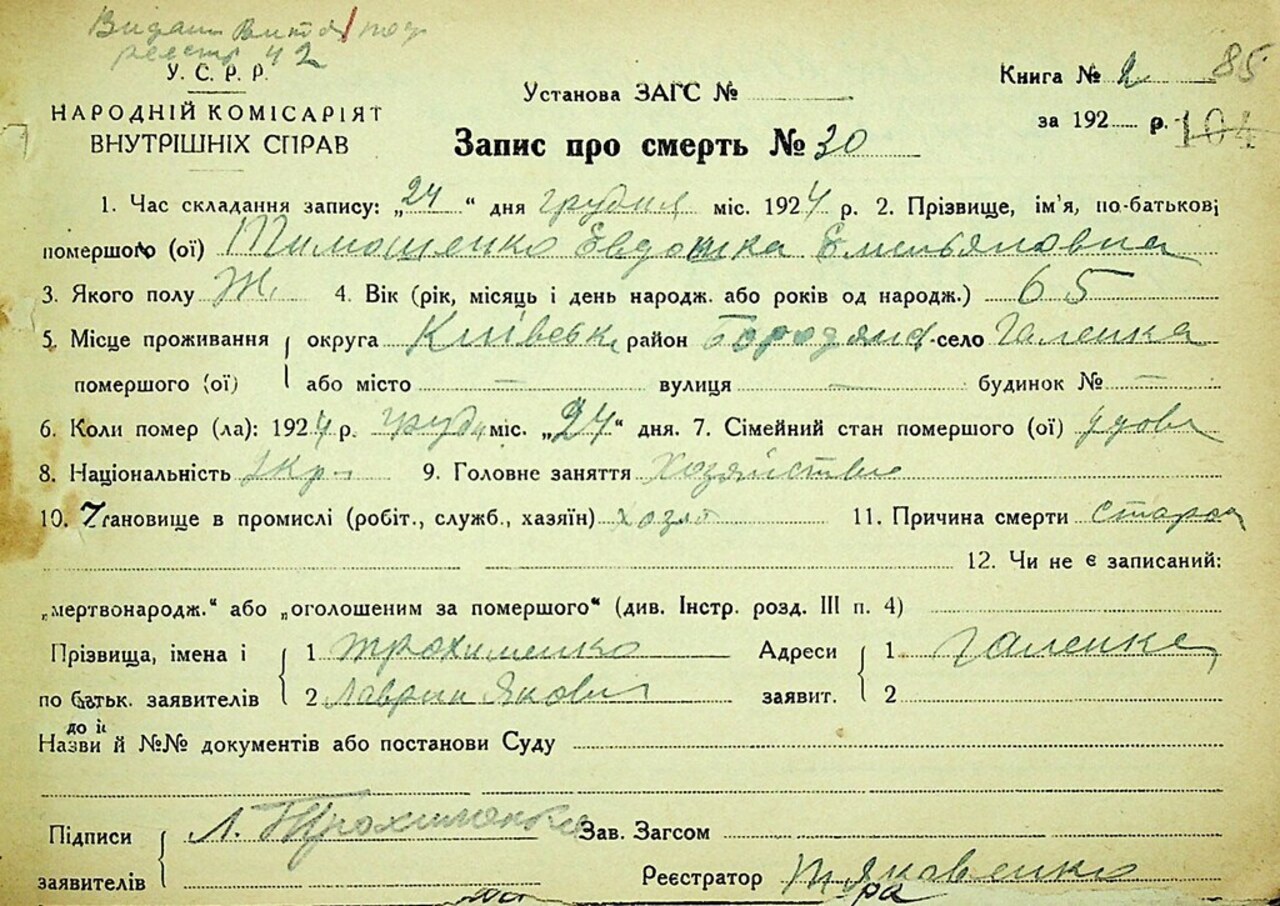 Видан Витяг
реестр 42
У. С. Р. Р.
НАРОДНІЙ КОМІСАРІЯТ
ВНУТРІШНІХ СПРАВ
Установа ЗАГС №
Книга № 2 85
за 192 р. 104
Запис про смерть № 30
1. Час складання запису: „24“ дня грудня міс. 1924 р. 2. Прізвище, ім'я, по-батькові
помершого (ої) Тимошенко Евдошка Емельяновна
3. Якого полу Ж. 4. Вік (рік, місяць і день народж. або років од народж.) 65
5. Місце проживання округа Київськ район Бородянс село Галенка
помершого (ої) або місто — вулиця — будинок № —
6. Коли помер (ла): 1924 р. груд міс. „24“ дня. 7. Сімейний стан помершого (ої) удова
8. Національність Укр. 9. Головне заняття Хозяйство
10. тановище в промислі (робіт., служб., хазяїн) хозя 11. Причина смерти стара
12. Чи не є записаний:
„мертвонародж.“ або „оголошеним за помершого“ (див. Інстр. розд. III п. 4)
Прізвища, імена і 1 Трохименко Адреси 1 Галенка
по батьк. заявителів 2 Лаврин Якович заявит. 2
Назви й №№ документів або постанови Суду
Підписи Л. Трохименко Зав. Загсом
заявителів Реєстратор Яковенко